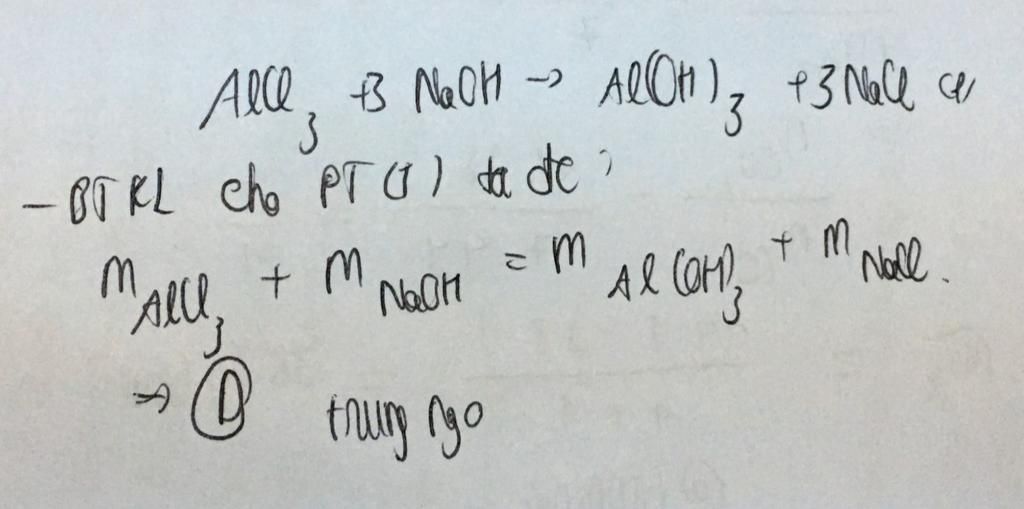 AlCl3 +3 NaOH → Al(OH)3 +3 NaCl (1)
- BTKL cho PT (1) ta đc :
m AlCl3 + m NaOH = m Al(OH)3 + m NaCl.
⇒ D trung ngo